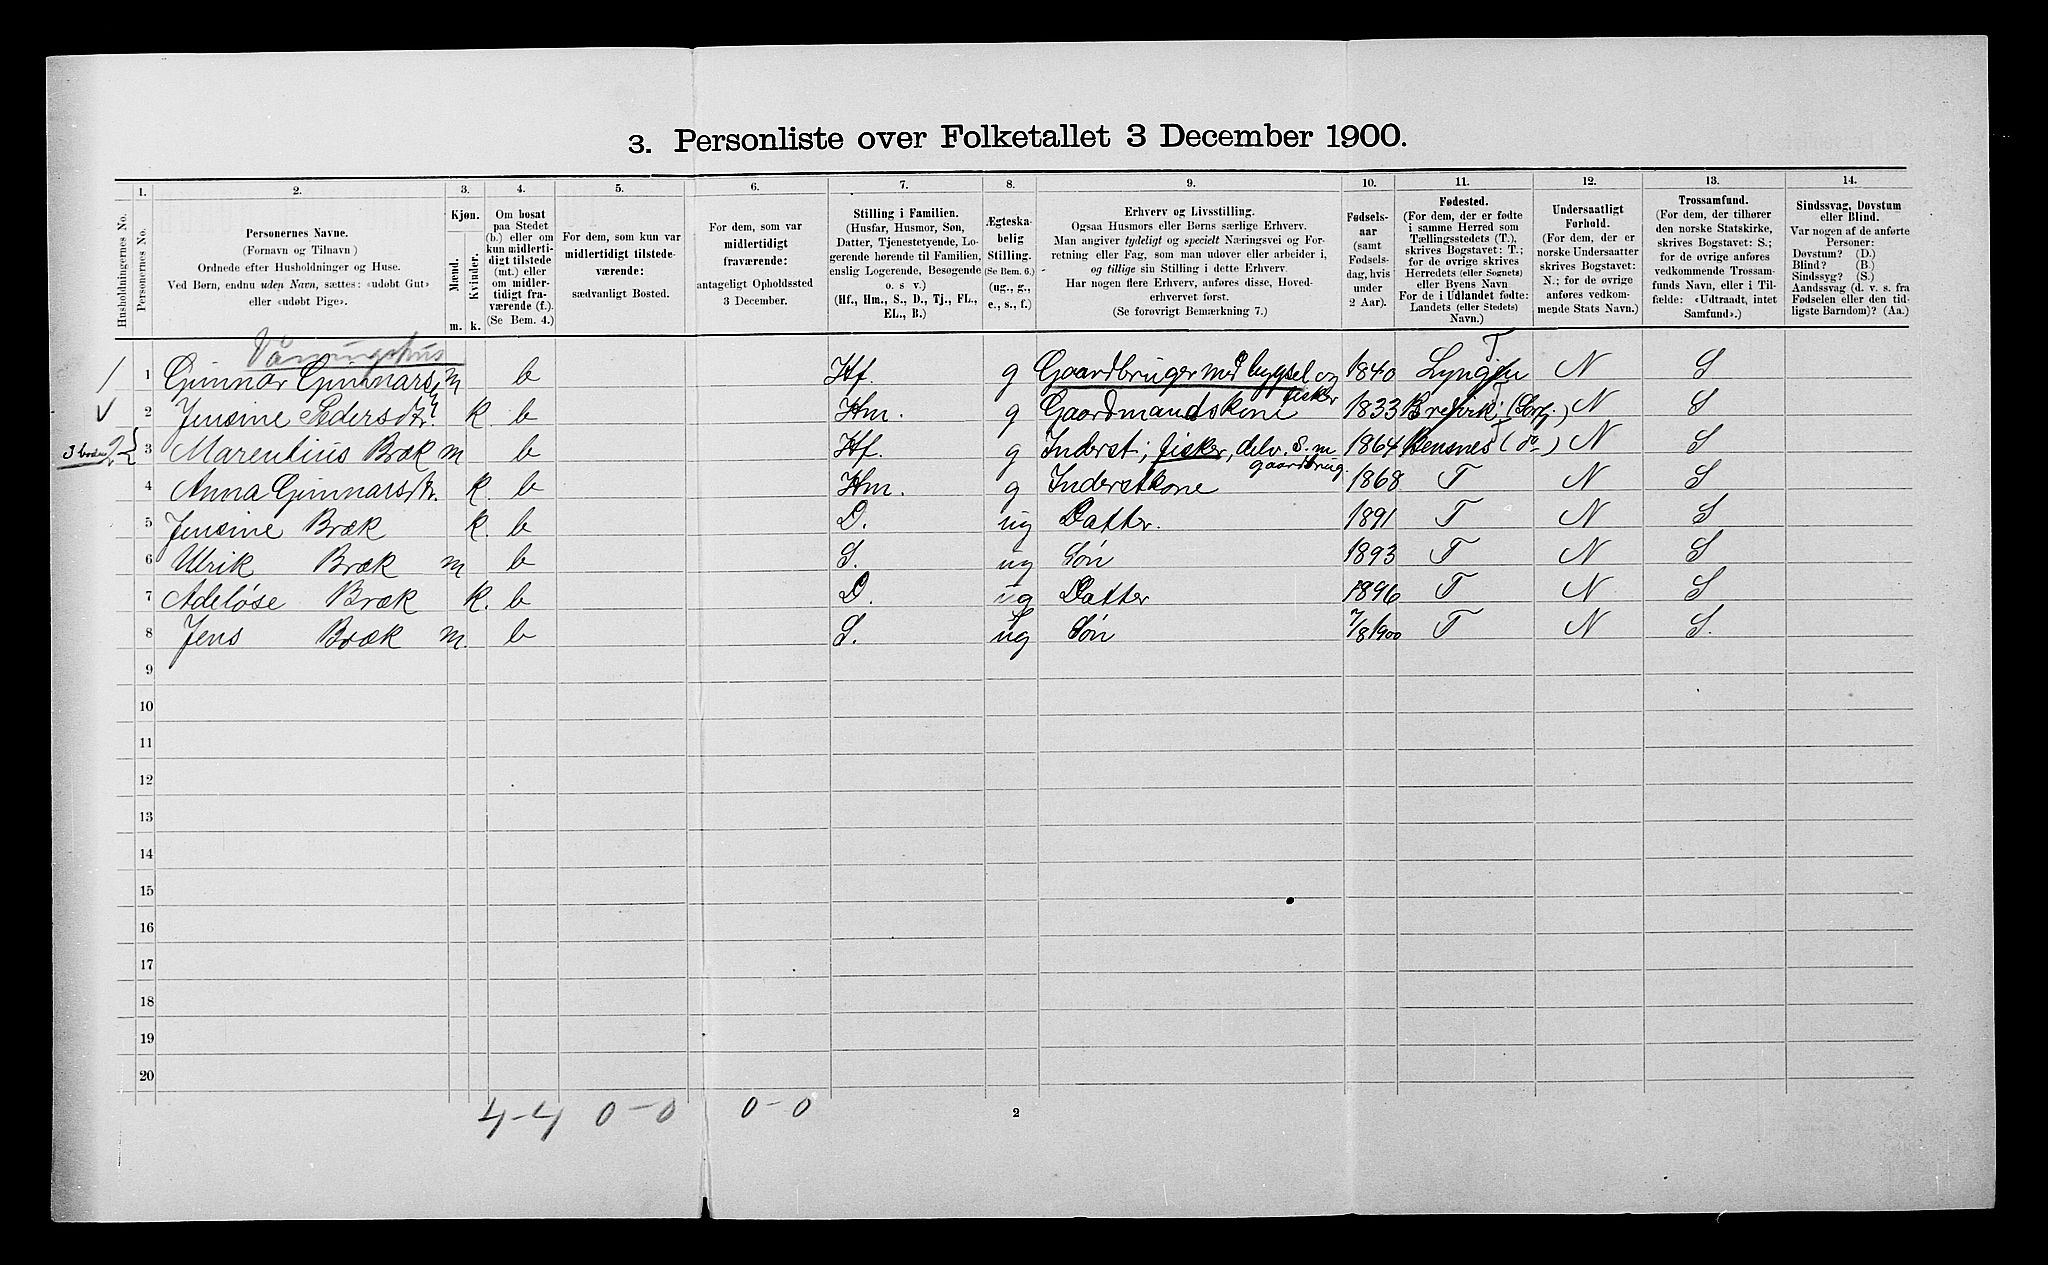 3. Personliste over Folketallet 3 December 1900.
Husholdningernes No.
1.
Personernes No.
2.
Personernes Navne.
(Fornavn og Tilnavn)
Ordnede efter Husholdninger og Huse.
Ved Børn, endnu uden Navn, sættes: «udøbt Gut»
eller «udøbt Pige».
3.
Kjøn.
Mænd.
Kvinder.
m. k.
4.
Om bosat
paa Stedet
(b.) eller om
kun midlerti-
digt tilstede
(mt.) eller
om midler-
tidigt fra-
værende (f.).
(Se Bem. 4.)
5.
For dem, som kun var
midlertidigt tilstede-
værende:
sædvanligt Bosted.
6.
For dem, som var
midlertidigt
fraværende:
antageligt Opholdssted
3 December.
7.
Stilling i Familien.
(Husfar, Husmor, Søn,
Datter, Tjenestetyende, Lo-
gerende hørende til Familien,
enslig Logerende, Besøgende
o. s v.)
(Hf., Hm., S., D., Tj., FL.,
EL., B.)
8.
Ægteska-
belig
Stilling.
(Se Bem. 6.)
(ug., g.,
e., s., f.)
9.
Erhverv og Livsstilling.
Ogsaa Husmors eller Børns særlige Erhverv.
Man angiver tydeligt og specielt Næringsvei og For-
retning eller Fag, som man udøver eller arbeider i,
og tillige sin Stilling i dette Erhverv.
Har nogen flere Erhverv, anføres disse, Hoved-
erhvervet først.
(Se forøvrigt Bemærkning 7.)
10.
Fødsels-
aar
(samt
Fødsels-
dag, hvis
under
2 Aar).
11.
Fødested.
(For dem, der er fødte
i samme Herred som
Tællingsstedets (T.),
skrives Bogstavet: T.;
for de øvrige skrives
Herredets (eller Sognets)
eller Byens Navn
For de i Udlandet fødte:
Landets (eller Stedets)
Navn.)
12.
Undersaatligt
Forhold.
(For dem, der er
norske Undersaatter
skrives Bogstavet:
N.; for de øvrige
anføres vedkom-
mende Stats Navn.)
13.
Trossamfund.
(For dem, der tilhører
den norske Statskirke,
skrives Bogstavet: S.;
for de øvrige anføres
vedkommende Trossam-
funds Navn, eller i Til-
fælde: «Udtraadt, intet
Samfund».)
14.
Sindssvag, Døvstum
eller Blind.
Var nogen af de anførte
Personer:
Døvstum? (D.)
Blind? (B.)
Sindssyg? (S.)
Aandssvag (d. v. s. fra
Fødselen eller den tid-
ligste Barndom)? (Aa.)
Vaaningshus
1 Gunnar Gunnarsen m b Hf. g Gaardbruger med bygsel og fisker 1840 Lyngen T N S
2 Jensine Pedersdtr. k. b Hm. g Gaardmandskone 1833 Brefvik T (Sorg.) N S
2 3 Marentius Bræk m b Hf. g Inderst; fisker, delv. S. m gaardbrug. 1864 Bensnes (do) T N S
4 Anna Gunnarsdtr. k. b Hm. g Inderstkone 1868 T N S
5 Jensine Bræk k. b D. ug Datter. 1891 T N S
6 Ulrik Bræk m b S. ug Søn 1893 T N S
7 Adeløse Bræk k. b D. ug Datter 1896 T N S
8 Jens Bræk m. b S. ug Søn 7/8 1900 T N S.
9
10
11
12
13
14
15
16
17
18
19
20
4-4 0-0 0-0
2